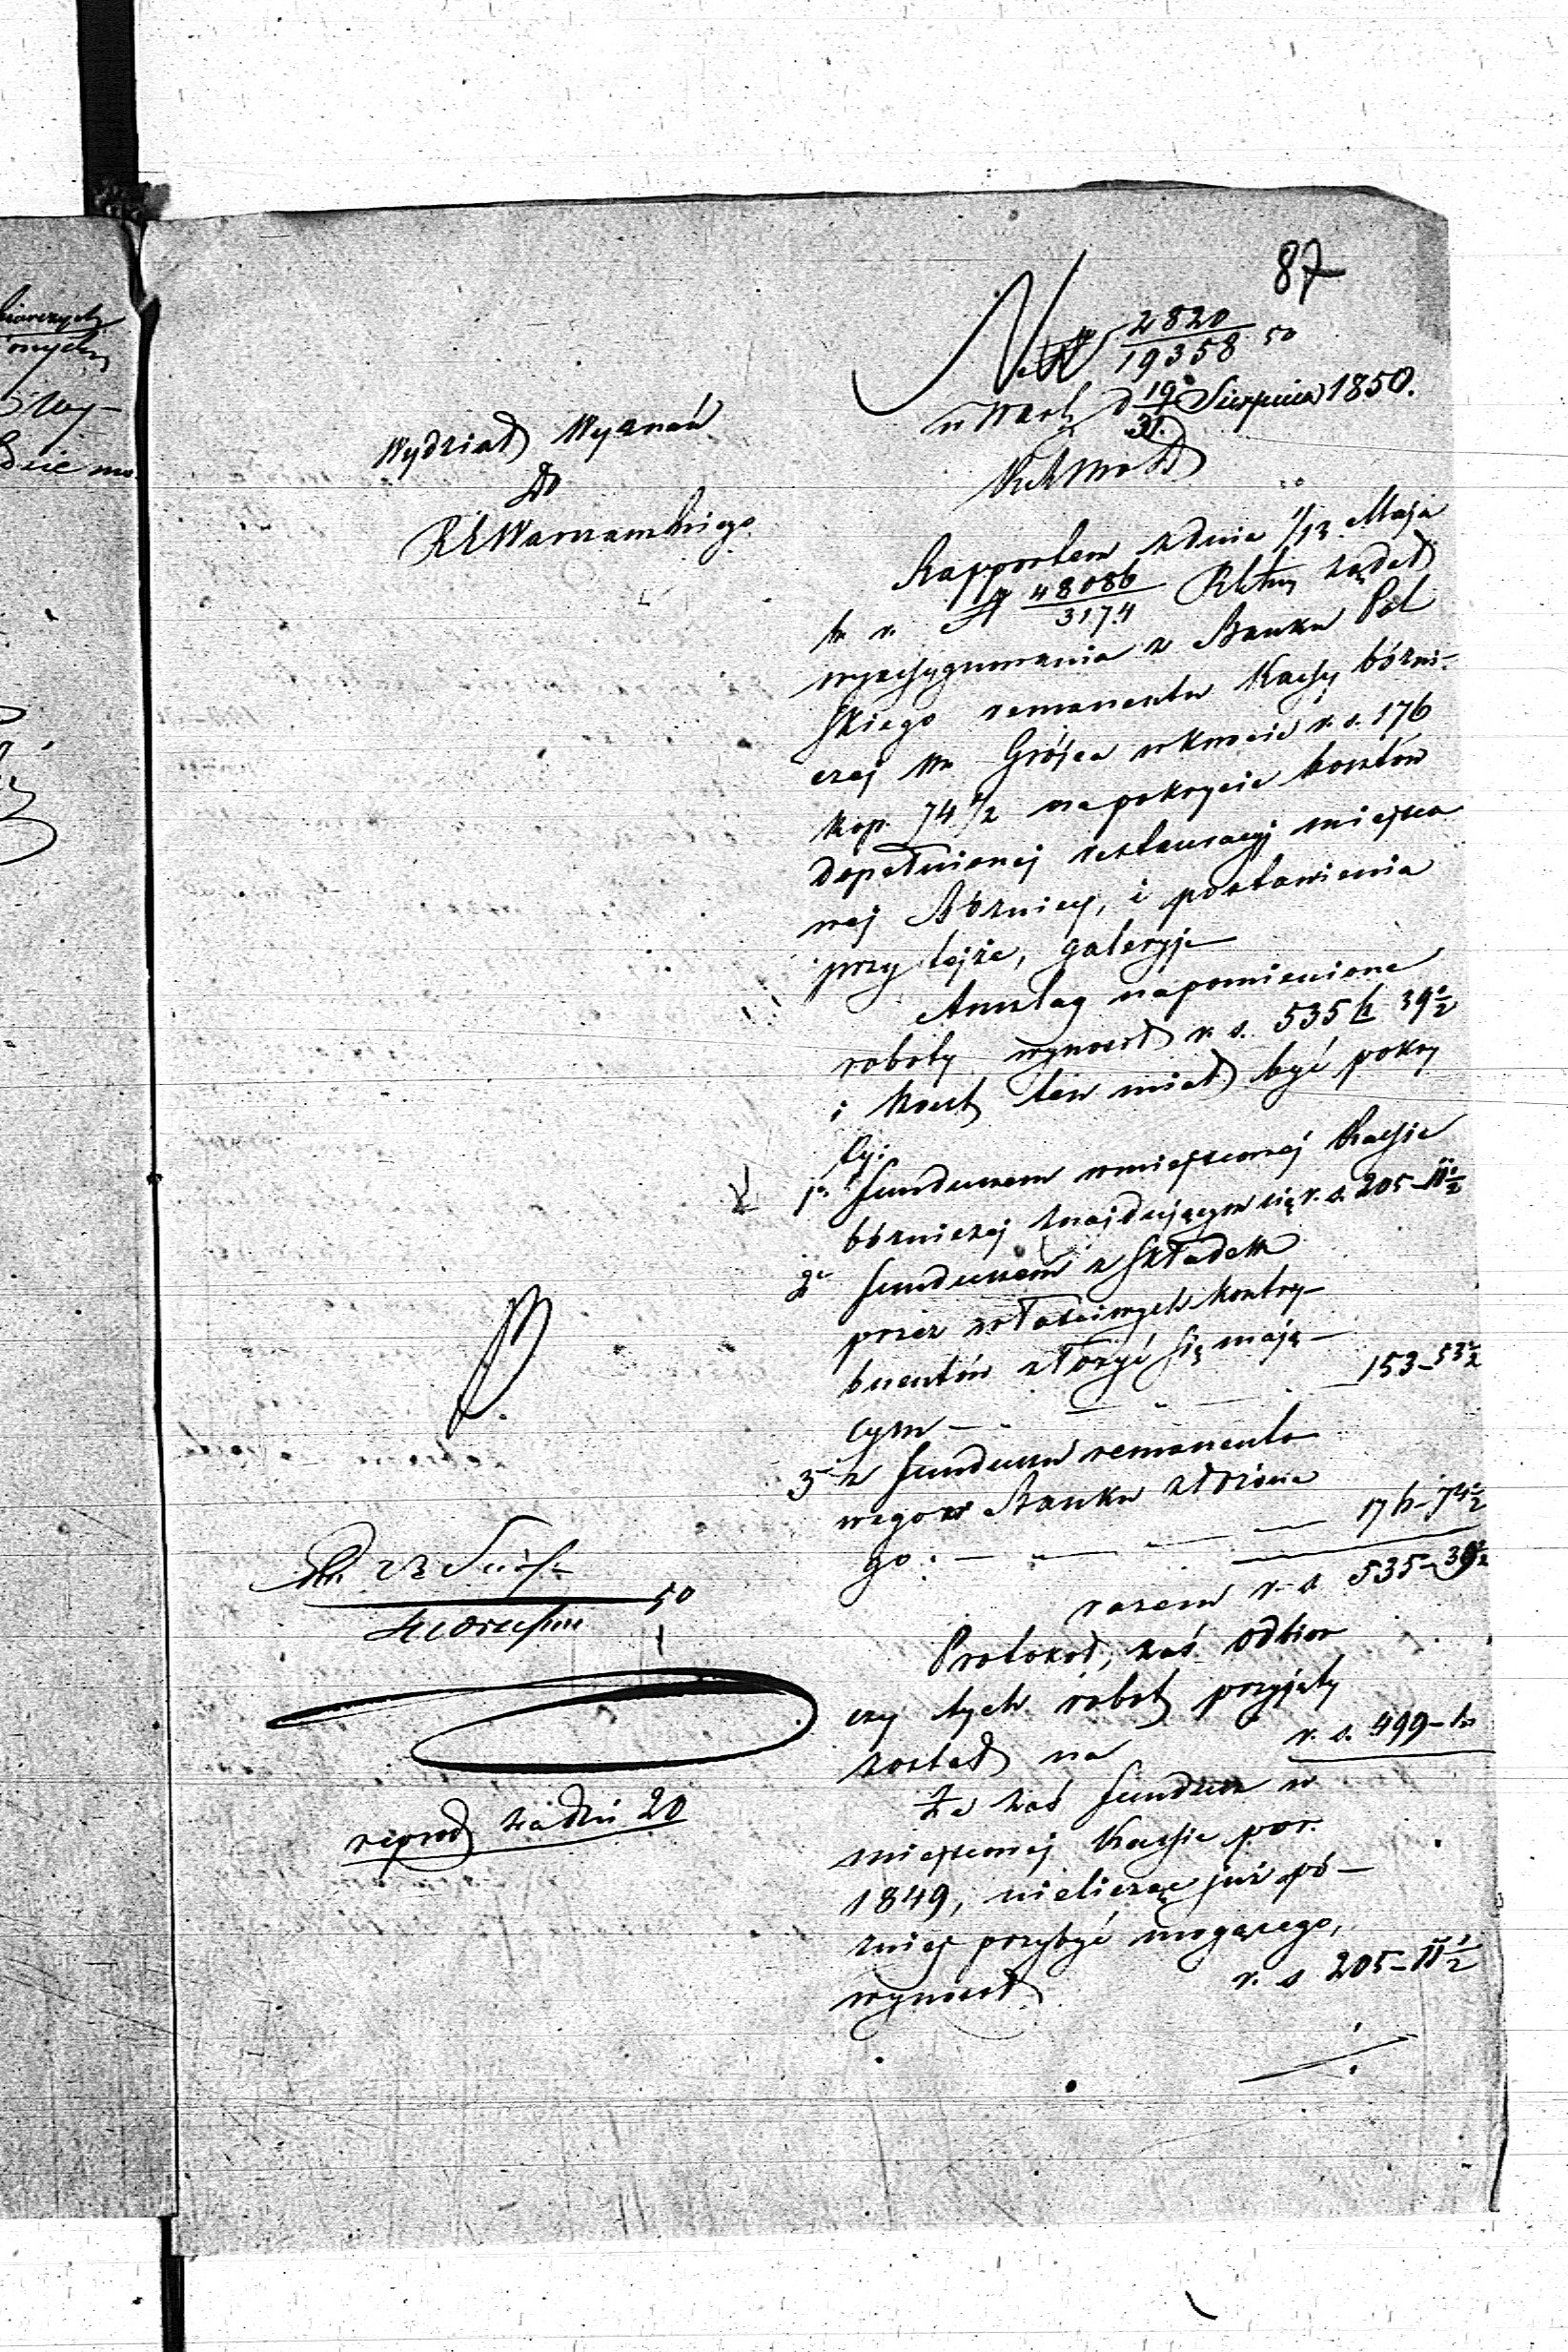 87
No 2820/19358 50
w Warsz d 19/31 Sierpnia 1850.
Wydział Wyznań
Do
RG Warszawskiego.
Rapportem z dnia 1/13 Maja
b. r. N 48086/3174 RGtny żądał
wyassygnowania z Banku Pol
skiego remanentu Kassy bóżni-
czej Mta Grójca w kwocie r. s. 176
kop. 74 1/2 na pokrycie kosztów
dopełnionej restauracyj miejsco
wej Bóżnicy, i postawienia
przy tejże, galeryje
Anszlag na pomienione
roboty wynosił r. s. 535 k 39 1/2
i koszt ten miał być pokry
ty:
1o funduszem w miejscowej Kassie
bóżniczej znajdującym się r. s. 205-11 1/2
2o funduszem z składek
przez właściwych kontry-
buentów złożyć się mają-
cym — 153-53 1/2
3 z funduszu remanento
wego w Banku złożone
go: — 176-74 1/2
razem r. s. 535-39 1/2
Protokół, zaś odbior
czy tych robót przyjęty
został na r. s. 499-
Że zaś fundusz w
miejscowej Kassie po r.
1849, nielicząc już pó-
źniej przybyć mogącego,
wynosił r. s 205-11 1/2
50
za dni 20